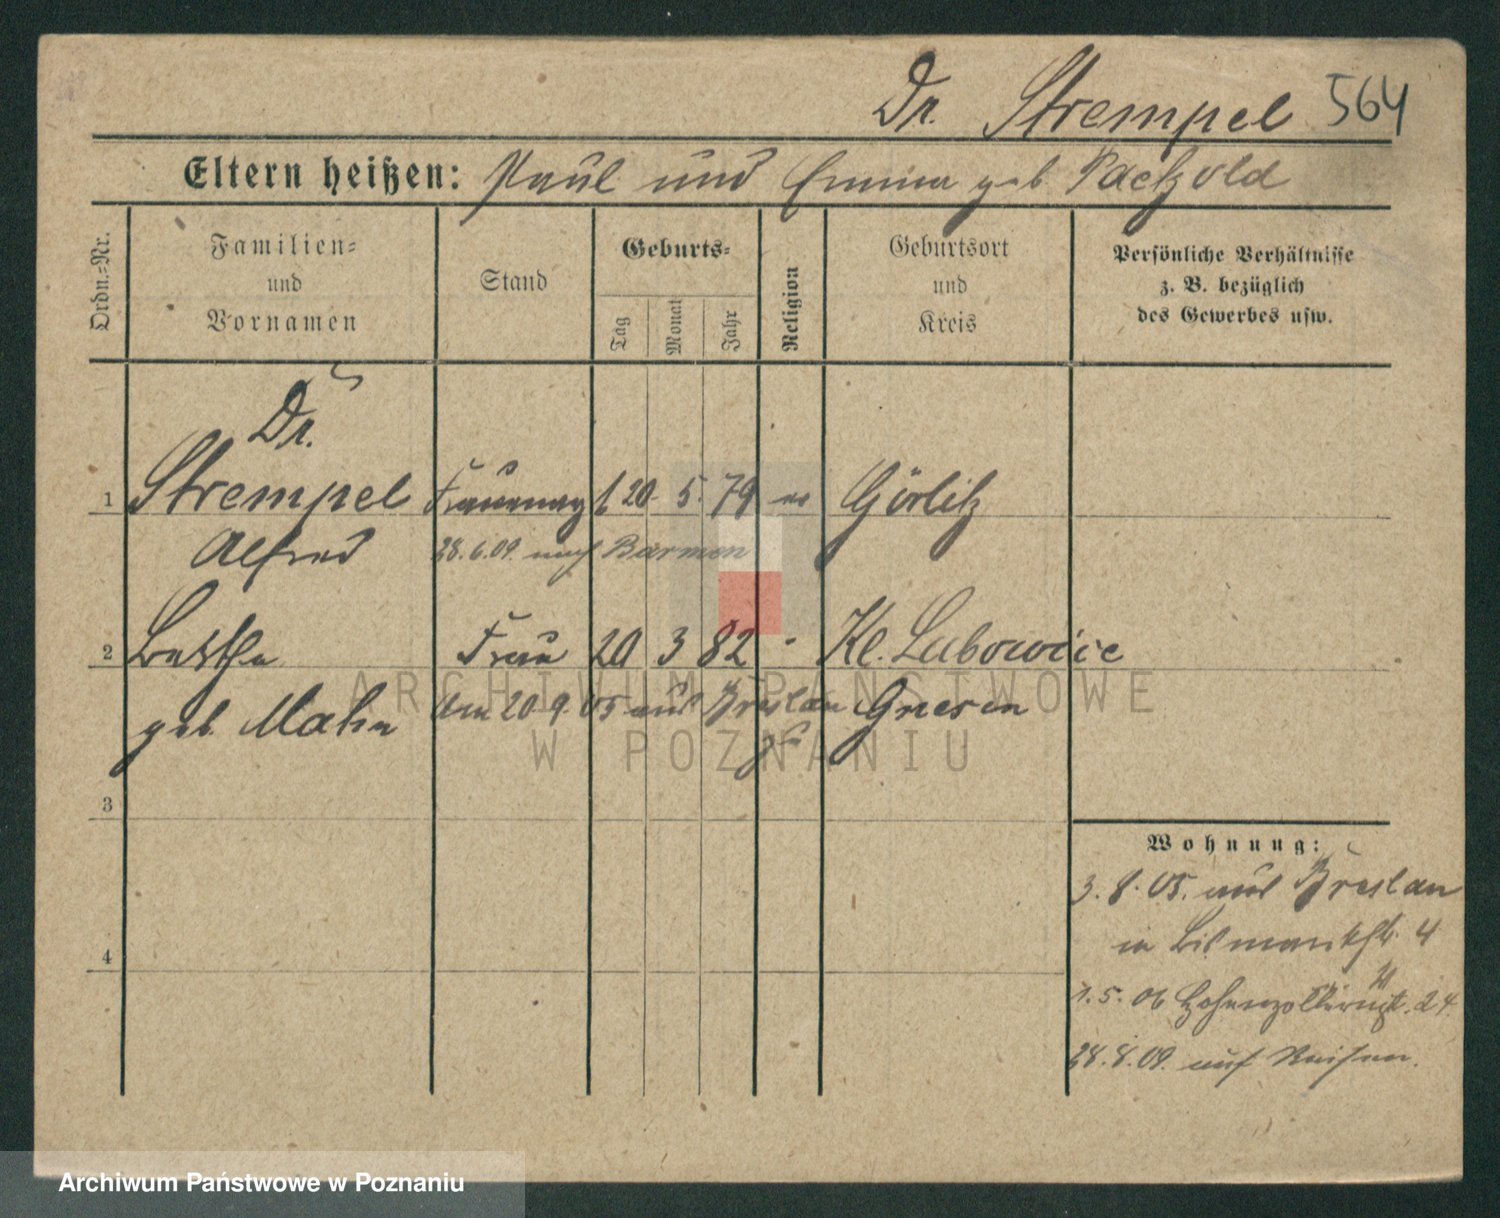 Dr. Strempel 564
Eltern heißen: Paul und Emma geb. Paetzold
Ordn.-Nr.
Familien-
und
Vornamen
Stand
Geburts-
Tag
Monat
Jahr
Religion
Geburtsort
und
Kreis
Persönliche Verhältnisse
z. B. bezüglich
des Gewerbes usw.
Dr.
1 Strempel 20. 5. 79 ev Görlitz
Alfred 28.6.09. nach Barmen
2 Berthe Frau 20 3 82 " Kl. Lubowice
geb. Mahn Am 20.9.05 aus Breslau Gnesen
zu
3
4
Wohnung:
3.8.05. aus Breslau
in Bismarckstr. 4
1.5.06 Hohenzollernstr. 24
28.8.09. auf Reisen.
ARCHIWUM PAŃSTWOWE
W POZNANIU
Archiwum Państwowe w Poznaniu